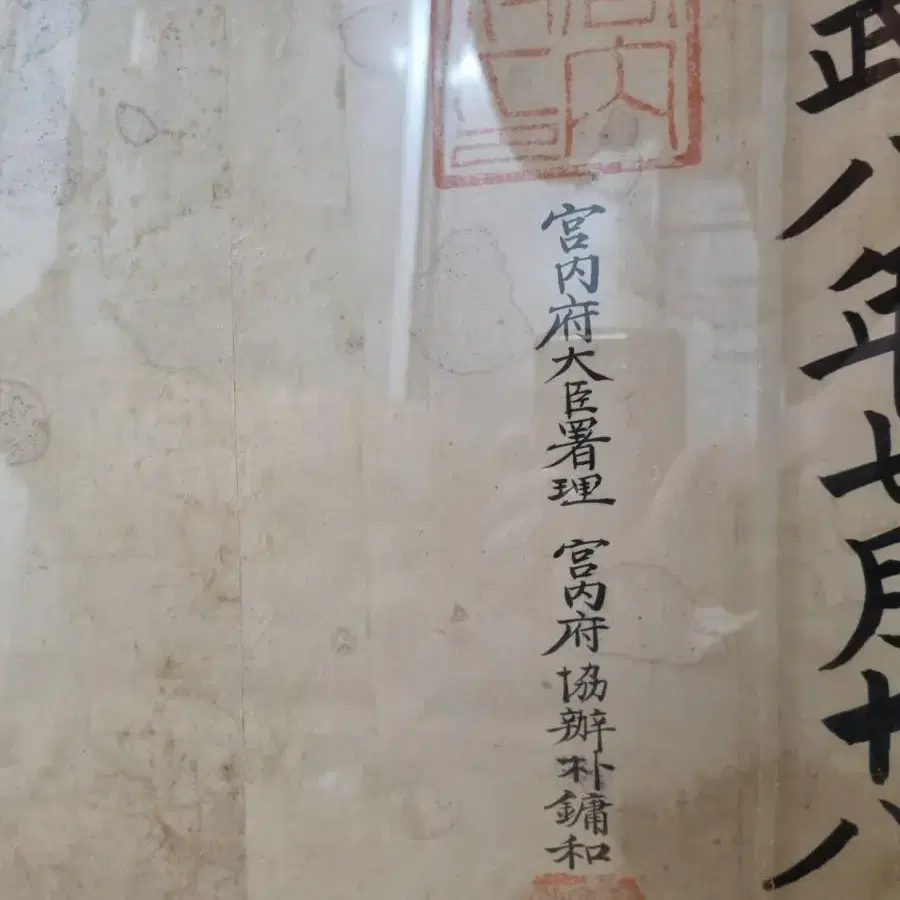 政八年七月十八
宮内府大臣署理 宮内府協辦朴鏞和